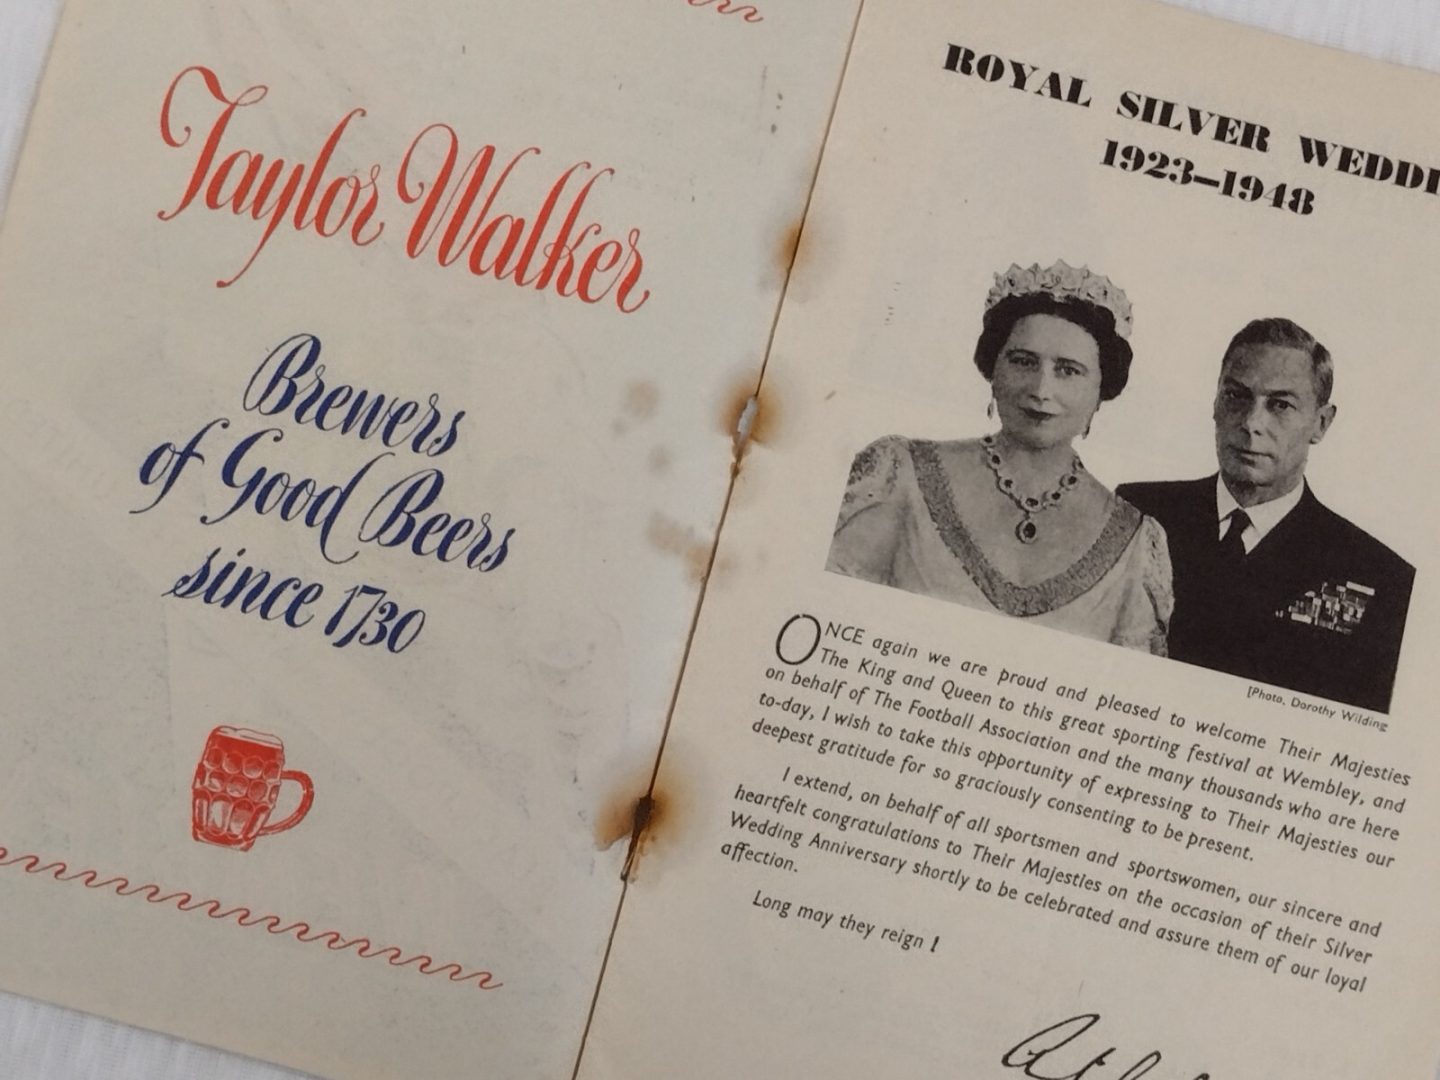 Taylor Walker
Brewers
of Good Beers
since 1730
ROYAL SILVER
1923–1948
[Photo, Dorothy Wilding
ONCE again we are proud and pleased to welcome Their Majesties
The King and Queen to this great sporting festival at Wembley, and
on behalf of The Football Association and the many thousands who are here
to-day, I wish to take this opportunity of expressing to Their Majesties our
deepest gratitude for so graciously consenting to be present.
I extend, on behalf of all sportsmen and sportswomen, our sincere and
heartfelt congratulations to Their Majesties on the occasion of their Silver
Wedding Anniversary shortly to be celebrated and assure them of our loyal
affection.
Long may they reign !